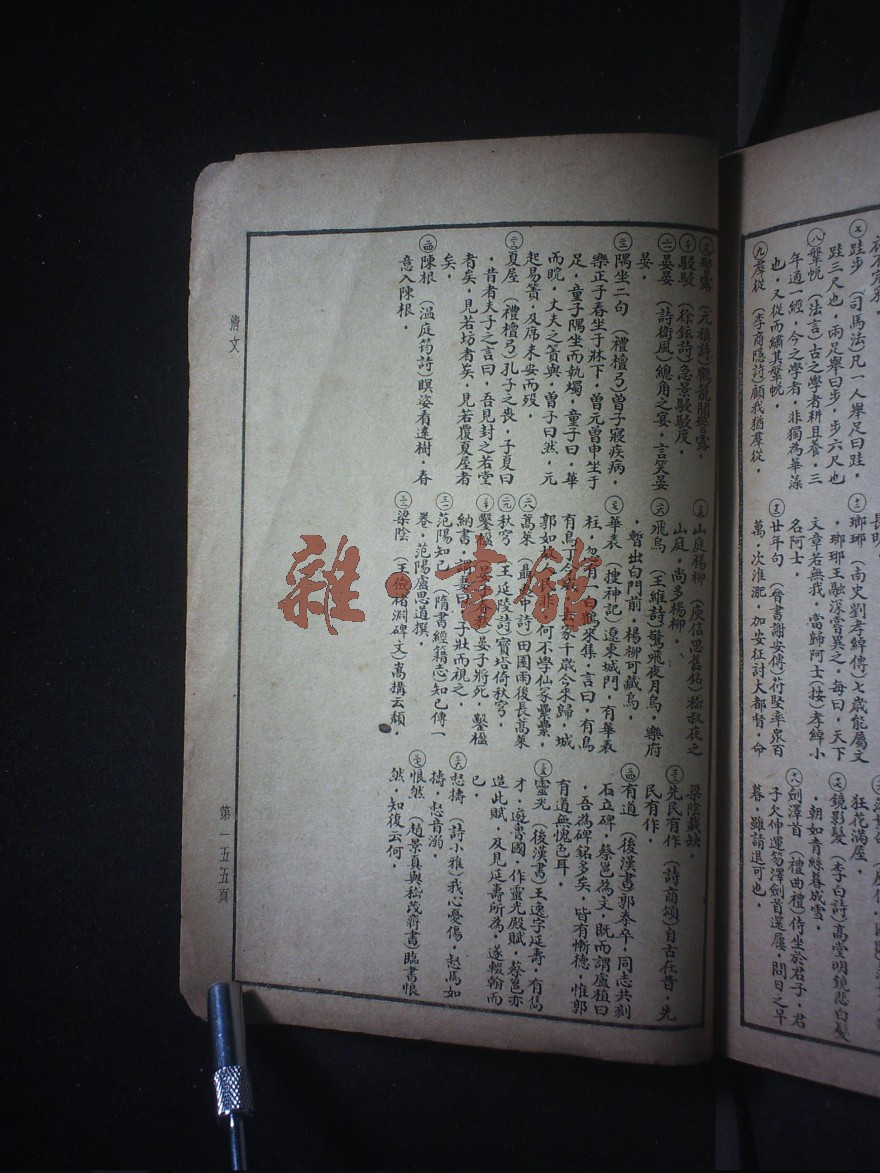 ㊆跬步(司馬法)凡一人舉足曰跬，
跬三尺也，兩足舉曰步，步六尺也
㊇鞶帨(法言)古之學者耕且養，三
年通一經，今之學者，非獨為華藻
也，又從而繡其鞶帨，
㊈羣從(李商隱詩)顧我猶羣從，
瑯琊(南史劉孝綽傳)七歲能屬文
，瑯琊王融深當異之，每曰，天下
文章若無我，當歸阿士(按)孝綽小
名阿士，
廿年句(晉書謝安傳)苻堅率衆百
萬，次淮淝，加安征討大都督，命
狂花滿屋，
鏡影髮(李白詩)高堂明鏡悲白髮
，朝如青絲暮成雪，
劍澤首(禮曲禮)侍坐於君子，君
子欠伸運笏澤劍首還屨，問日之早
暮，雖請退可也，
露(元稹詩)鶴籠閒警露，
駸駸(徐鉉詩)急景駸駸度，
晏晏(詩衞風)總角之宴，言笑晏
晏，
隅坐二句(禮檀弓)曾子寢疾病，
樂正子春坐于牀下，曾元曾申坐于
足，童子隅坐而執燭，童子曰，華
而睆，大夫之簀與，曾子曰然，元
起易簀，反席未安而歿，
夏屋(禮檀弓)孔子之喪，子夏曰
，昔者夫子之言曰，吾見封之若堂
者矣，見若坊者矣，見若覆夏屋者
矣，
陳根(溫庭筠詩)暝姿看遠樹，春
意入陳根，
山庭楊柳(庾信思舊銘)嵇叔夜之
山庭，尚多楊柳，
飛烏(王維詩)驚飛夜月烏，樂府
，暫出白門前，楊柳可藏烏，
華表(搜神記)遼東城門，有華表
柱，忽有一白鶴來集，言曰，有鳥
有鳥丁令威，去家千歲今來歸，城
郭如故人民非，何不學仙冢壘壘，
蒿萊(聶夷中詩)田園雨後長蒿萊
秋穹(王延陵詩)寶塔倚秋穹，
鑿楹(晏子春秋)晏子將死，鑿楹
納書，謂妻曰，子壯而視之，
范陽知己(隋書經籍志)知己傳一
卷，范陽盧思道撰，
梁陰(王儉褚淵碑文)嵩構云頹，
梁陰載缺，
先民有作(詩商頌)自古在昔，先
民有作，
有道(後漢書)郭泰卒，同志共刻
石立碑，蔡邕為文，既而謂盧植曰
，吾為碑銘多矣，皆有慚德，惟郭
有道無愧色耳，
靈光(後漢書)王逸字延壽，有雋
才，遊魯國，作靈光殿賦，蔡邕亦
造此賦，及見延壽所為，遂輟翰而
已，
惄擣(詩小雅)我心憂傷，惄焉如
擣，惄音溺，
悵然(趙景真與嵇茂齊書)臨書悵
然，知復云何，
第一五五頁
雜·書館